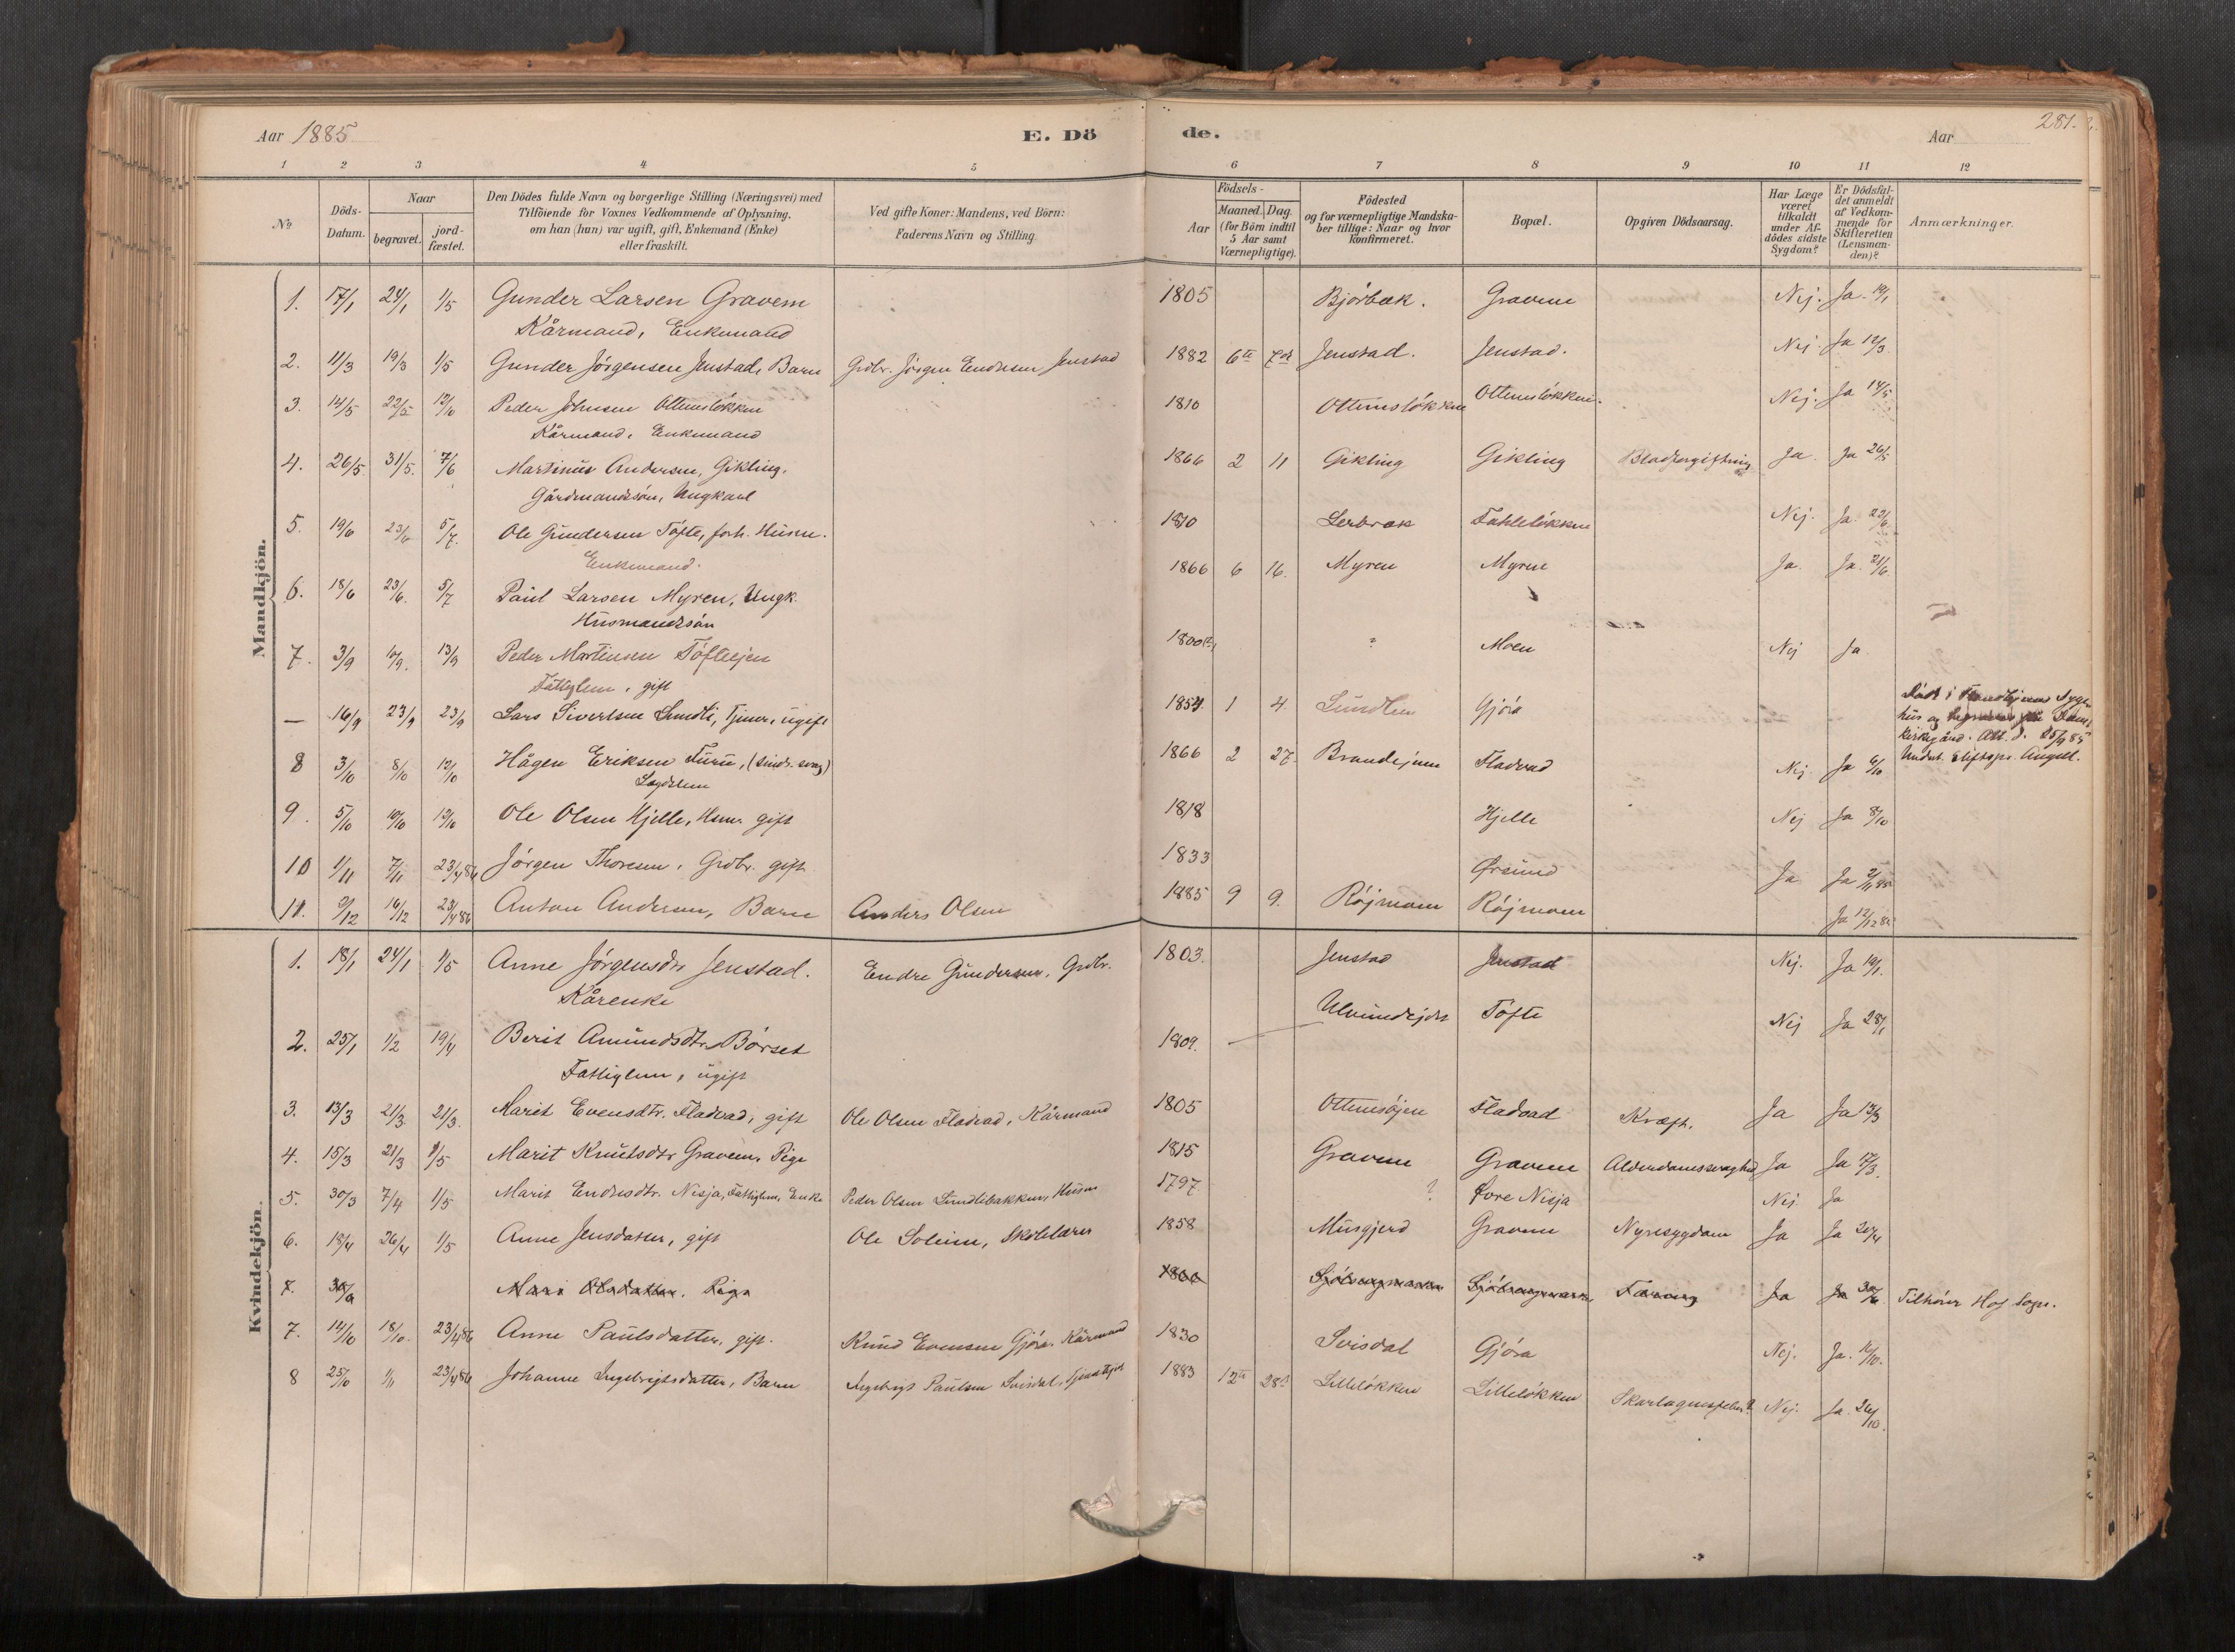 Aar 1885
E. Dö de.
Aar
281.
1 2 3 4 5 6 7 8 9 10 11 12
No
Döds-Datum.
Naar
begravet.
jord-fæstet.
Den Dödes fulde Navn og borgerlige Stilling (Næringsvei) med
Tilföiende for Voxnes Vedkommende af Oplysning.
om han (han) var ugift, gift, Enkemand (Enke)
eller fraskilt.
Ved gifte Koner: Mandens, ved Börn:
Faderens Navn og Stilling.
Födsels-
Aar
Maaned. Dag.
(for Börn indtil
5 Aar samt
Værnepligtige).
Födested
og for værnepligtige Mandska-
ber tillige: Naar og hvor
konfirmeret.
Bopæl.
Opgiven Dödsaarsag.
Har Læge
været
tilkaldt
under Af-
dödes sidste
Sygdom?
Er Dödsfal-
det anmeldt
af Vedkom-
mende for
Skifteretten
(Lensman-
den)?
Anmærkninger.
Mandkjön.
1. 17/1 24/1 1/5 Gunder Larsen Gravem 1805 Bjørbæk. Gravem Nej. Ja. 19/1
Kårmand, Enkemand
2. 11/3 19/3 1/5 Gunder Jørgensen Jenstad, Barn Grdbr. Jørgen Endresen Jenstad 1882 6te 7de Jenstad. Jenstad. Nej. Ja 12/3.
3. 14/5 22/5 12/10 Peder Johnsen Ottemsløkken 1810 Ottemsløkken Ottemsløkken. Nej. Ja 14/5
Kårmand, Enkemand
4. 26/5 31/5. 7/6 Martinus Andersen, Gikling. 1866 2 11 Gikling Gikling Blodforgiftning Ja. Ja 26/5
Gårdmandssøn, Ungkarl
5. 19/6 23/6 5/7. Ole Gundersen Tøfte, forh. Husm. 1810 Lerbræk Fahleløkken Nej. Ja. 23/6.
Enkemand.
6. 18/6 23/6. 5/7 Paul Larsen Myren, Ungk. 1866 6 16. Myren Myren Ja. Ja. 21/6.
Husmandssøn
7. 3/9 10/9. 13/9 Peder Martinsen Tøfteejen 1800 ? Moen Nej Ja.
Fattiglem, gift
— 16/9 23/9 23/9 Lars Sivertsen Sundli, Tjener, ugift 1854. 1 4 Sundlien Gjøra
Død i Trondhjems Syge-
hus og
Kirkegård. Att. d. 25/9 85
Underst. Stiftspr. Angell.
8 3/10 8/10 12/10 Hågen Eriksen Furu, (sinds. svag) 1866 2 27. Brandejnen Fladvad Nej. Ja 6/10
Lægdslem
9. 5/10 10/10 12/10 Ole Olsen Hjelle, Husm. gift 1818 Hjelle Nej Ja 8/10
10 1/11 7/11 23/4 86 Jørgen Thoresen, Grdbr. gift 1833 Ørsund Ja Ja 2/11 85
11. 9/12 16/12 23/4 86 Anton Andersen, Barn Anders Olsen 1885 9 9. Røjmoen Røjmoen Ja 12/12 85
Kvindekjön.
1. 18/1 24/1 1/5 Anne Jørgensdtr Jenstad. Endre Gundersen, Grdbr. 1803. Jenstad Jenstad Nej. Ja 19/1.
Kårenke
2. 25/1 1/2 19/4 Berit Amundsdtr. Børset 1809. Ulvundejdet Tøfte Nej Ja 28/1
Fattiglem, ugift
3. 13/3 21/3 21/3. Marit Evensdtr. Fladvad, gift Ole Olsen Fladvad, Kårmand 1805 Ottemsøjen Fladvad Kræft. Ja Ja 13/3
4. 15/3 21/3 1/5 Marit Knutsdtr Gravem, Pige 1815 Gravem Gravem Alderdomssvaghed Ja Ja 17/3.
5. 30/3 7/4 1/5 Marit Endresdtr. Nisja, Fattiglem, Enke Peder Olsen Sundlibakken, Husm 1797 ? Øvre Nisja Nej Ja
6. 18/4 26/4 1/5 Anne Jensdatter, gift Ole Soleim, Skolelærer 1858 Musgjerd Gravem Nyresygdom Ja Ja 20/4
7. 30/9 Mari Olsdatter. Pige 1800 Tæring Ja Ja 30/9 Tilhører Hof Sogn.
7. 14/10 18/10. 23/4 86 Anne Paulsdatter, gift. Knud Evensen Gjøra Kårmand 1830 Svisdal Gjøra Nej. Ja. 16/10.
8 25/10 1/11 23/4 86 Johanne Ingebrigtsdatter, Barn Ingebrigt Paulsen Svisdal, 1883 12te 28de Lilleløkken Lilleløkken Skarlagensfeber? Nej. Ja. 26/10.